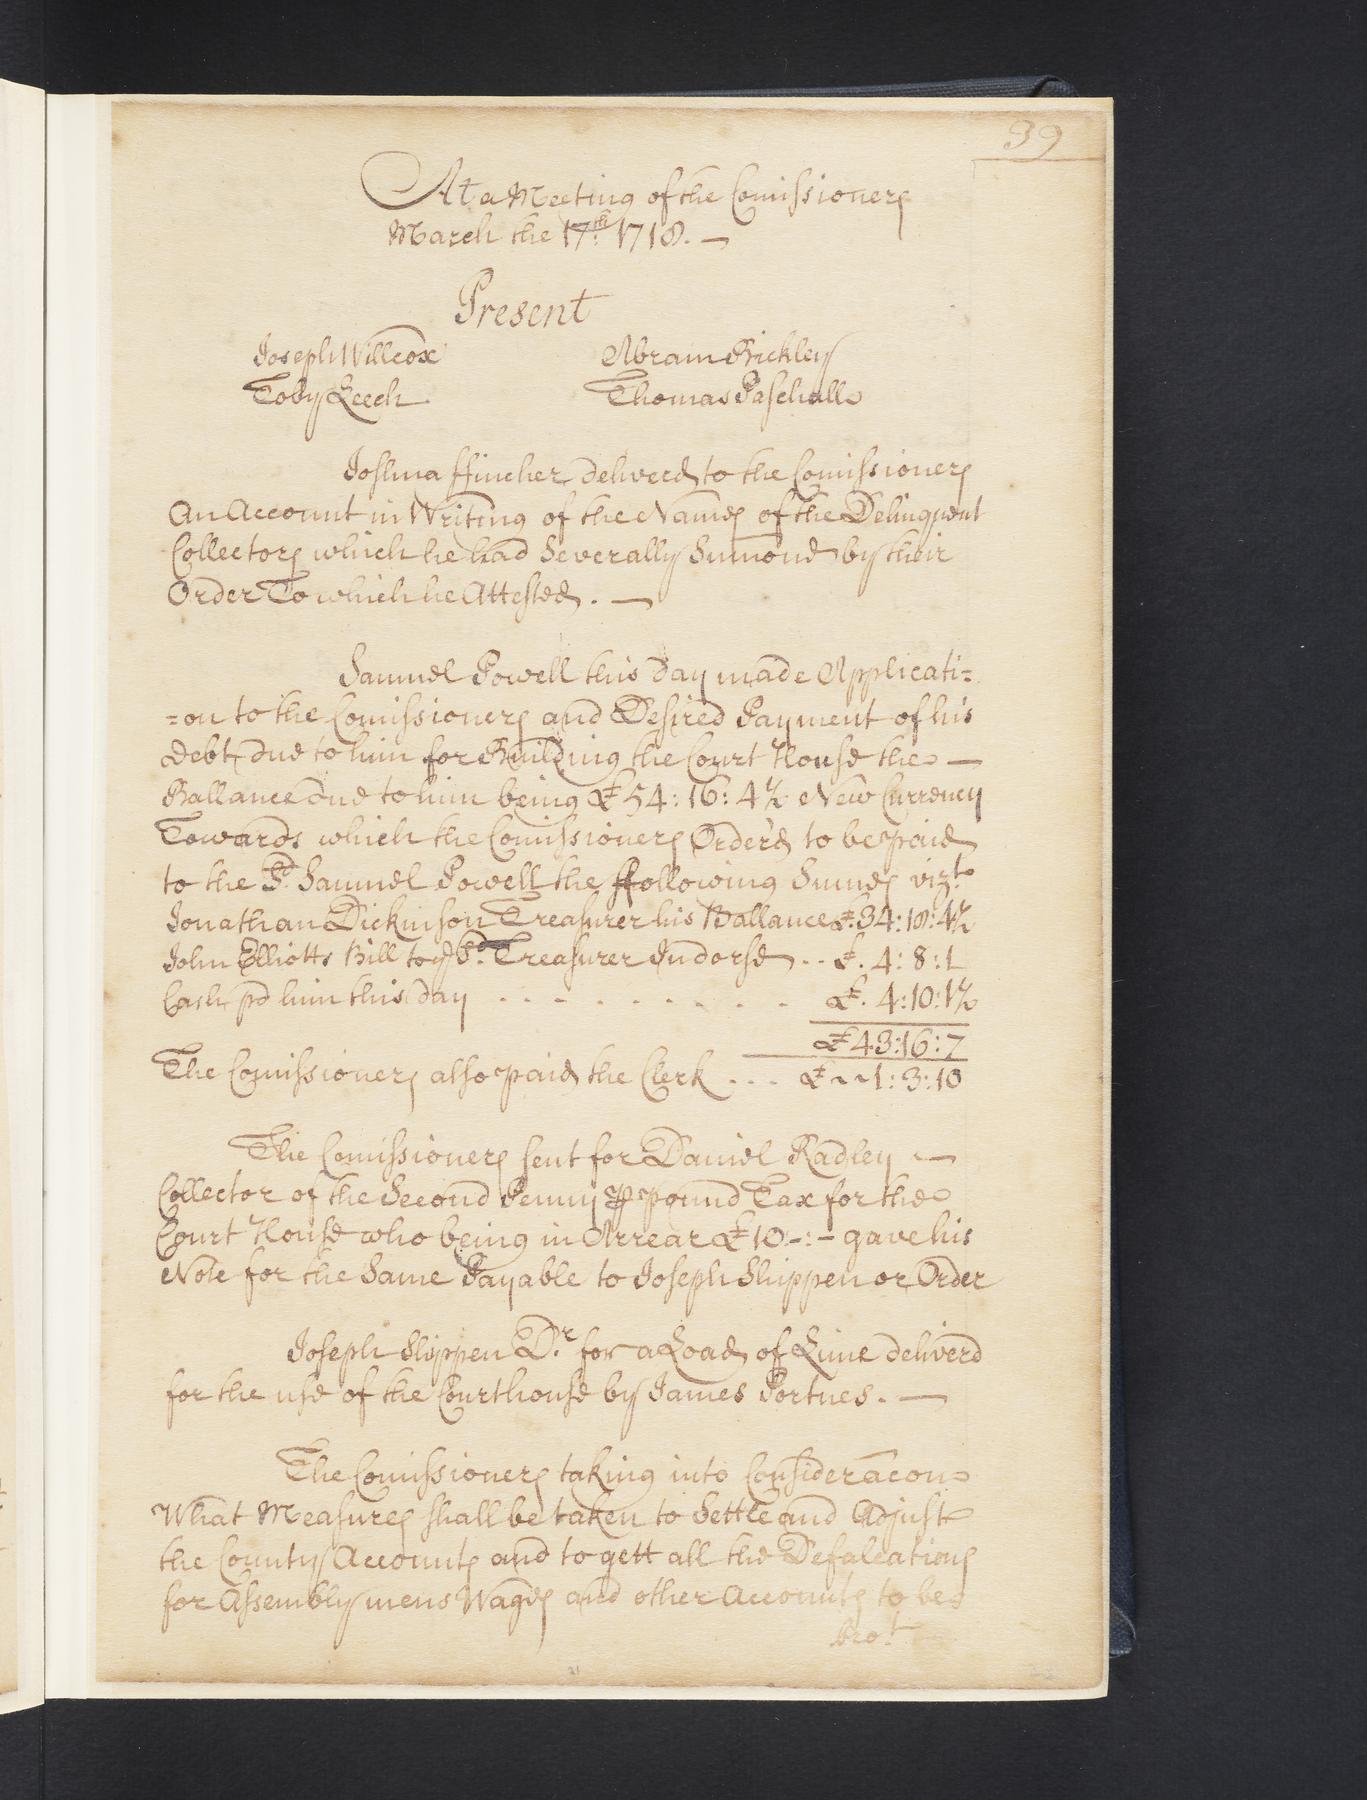 39
At a Meeting of the Comissioners
March the 17th: 1718. —
Present
Joseph Willcox Abram Bickley
Toby Leech Thomas Paschall
Joshua ffincher deliverd to the Comissioners
An Account in Writing of the Names of the Delinquent
Collectors which he had Severally Sumond by their
Order To which he Attested. —
Samuel Powell this day made Applicati=
=on to the Comissioners and Desired Payment of his
Debt due to him for Building the Court House the —
Ballance due to him being £54:16:4½ New Currency
Towards which the Comissioners Order'd to be paid
to the Sd. Samuel Powell the ffollowing Sumes vizt
Jonathan Dickinson Treasurer his Ballance £.34:18:4½
John Elliotts Bill to ye Sd. Treasurer Indorsd .. £. 4:8:1
Cash pd him this day . . . . . . . . . . £. 4:10:1½
£43:16:7
The Comissioners also paid the Clerk ... £~~1:3:10
The Comissioners sent for Daniel Radley —
Collector of the Second Penny ⅌ pound Tax for the
Court House who being in Arrear £10-:- gave his
Note for the Same Payable to Joseph Shippen or Order
Joseph Shippen Dr. for a Load of Lime deliverd
for the use of the Courthouse by James Portues. —
The Comissioners taking into Consideracon
What Measures shall be taken to Settle and Adjust
the County Accounts and to gett all the Defalcations
for Assembly mens Wages and other Accounts to be
bro.t